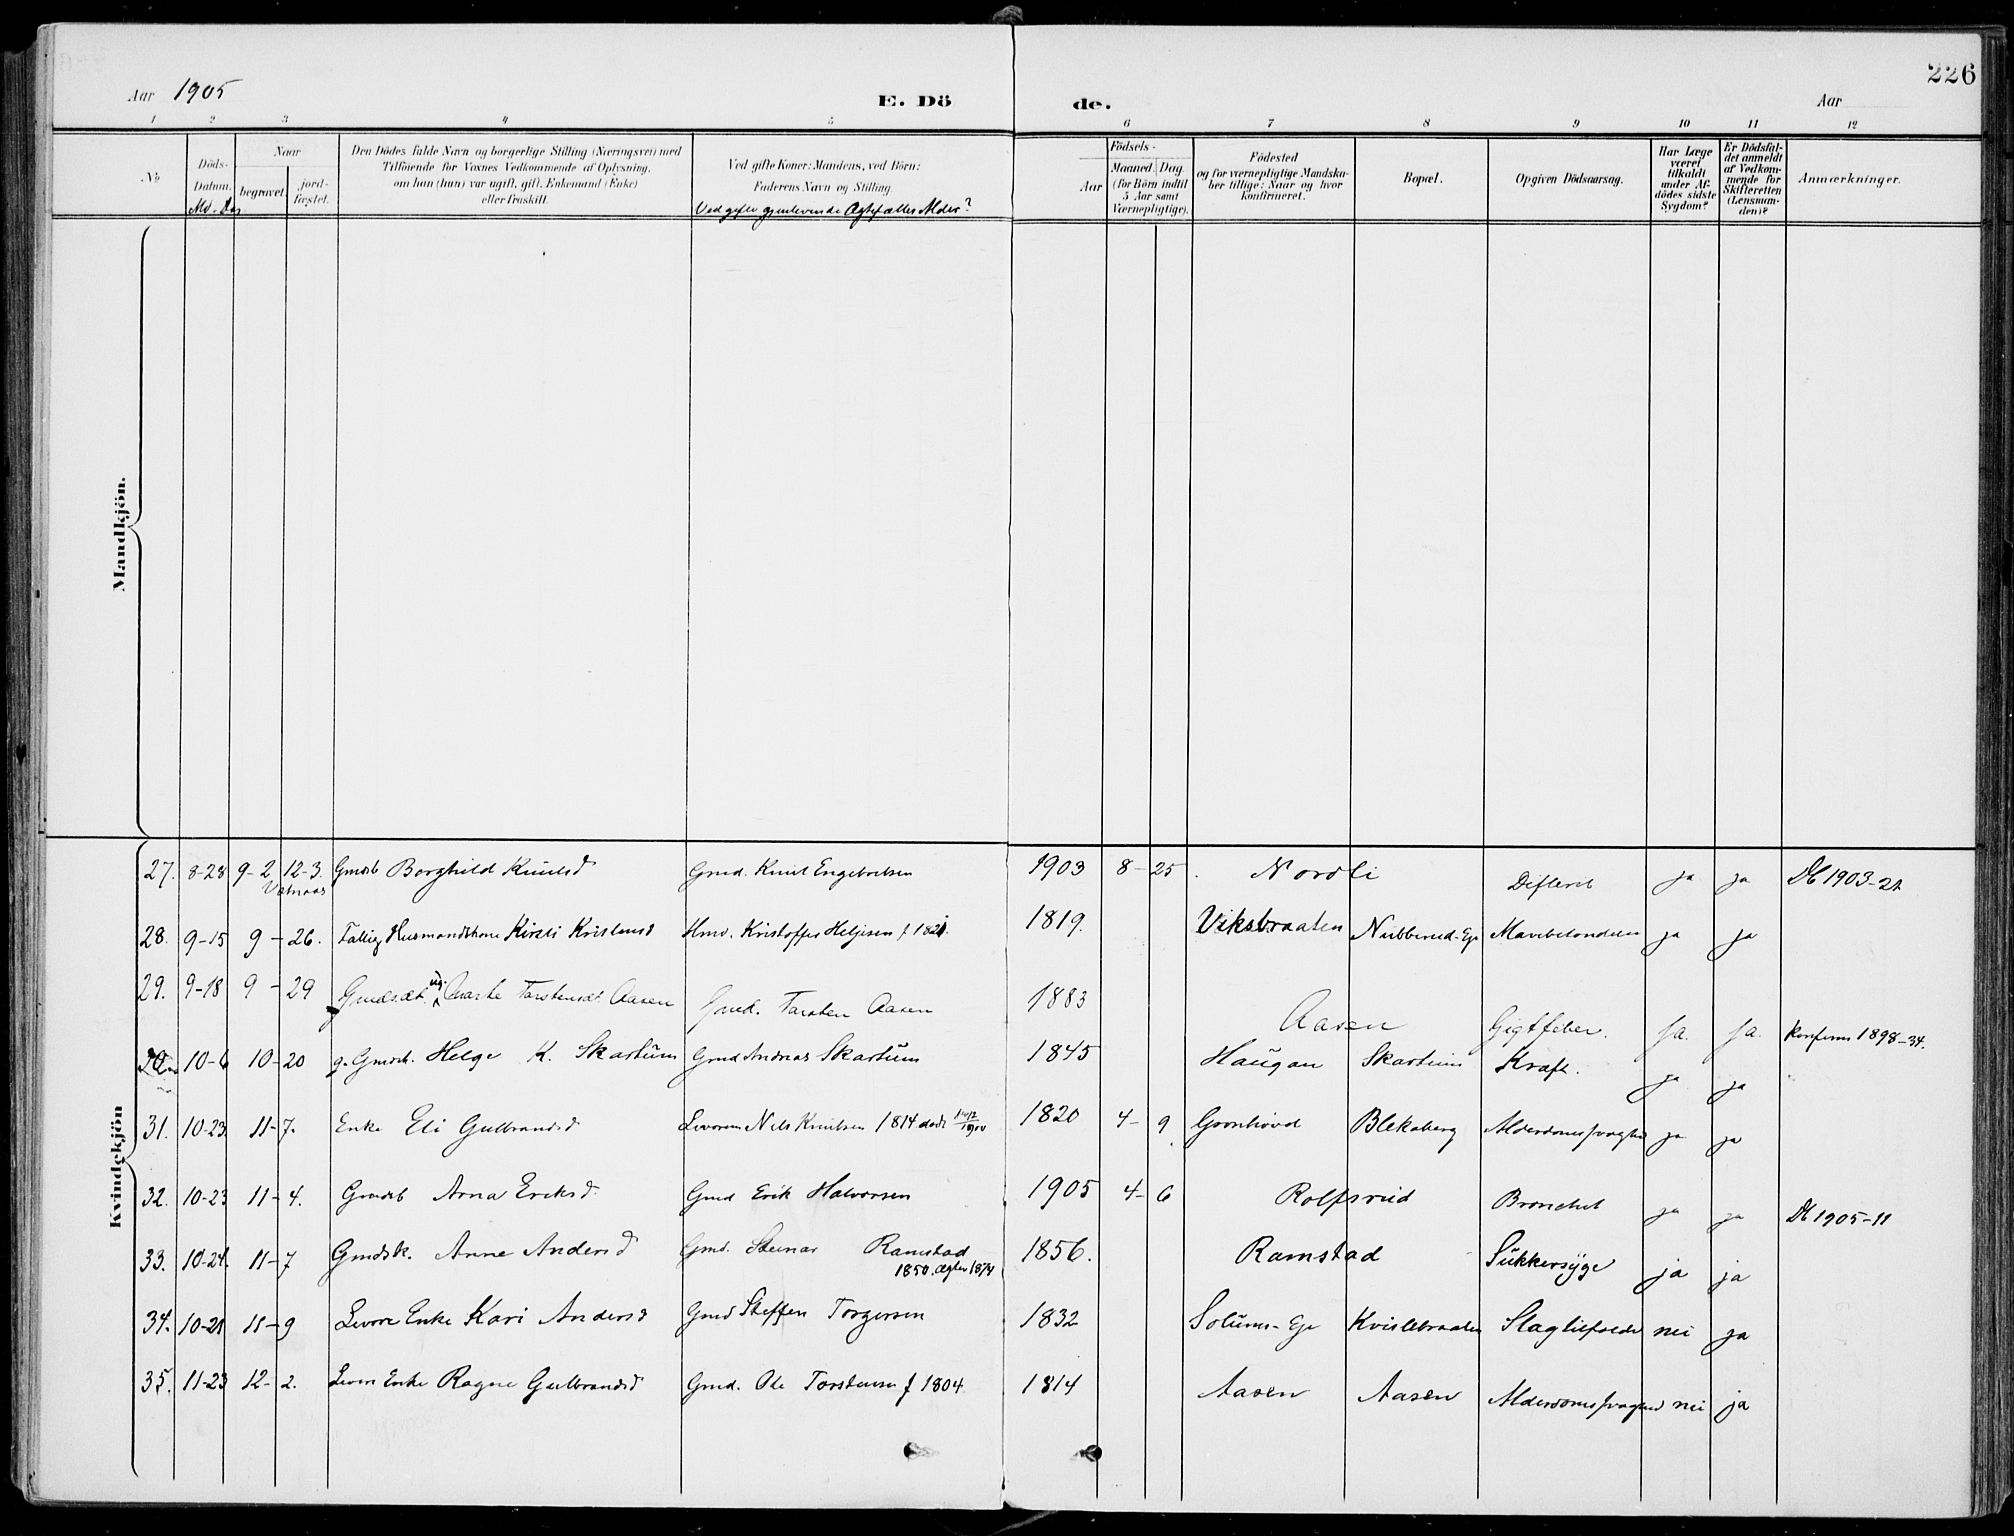 226
Aar 1905
E. Döde.
Aar
1 2 3 4 5 6 7 8 9 10 11 12
No
Döds-Datum.
Md. Dag
Naar
begravet.
jord-fæstet.
Den Dödes fulde Navn og borgerlige Stilling (Næringsvei) med
Tilföiende for Voxnes Vedkommende af Oplysning,
om han (hun) var ugift, gift, Enkemand (Enke)
eller fraskilt.
Ved gifte Koner: Mandens, ved Börn:
Faderens Navn og Stilling.
Ved gifte gjenlevende Ægtefælles Alder?
Aar
Födsels-
Maaned. Dag
(for Börn indtil
5 Aar samt
Værnepligtige).
Födested
og for værnepligtige Mandska-
ber tillige: Naar og hvor
konfirmeret.
Bopæl.
Opgiven Dödsaarsag.
Har Læge
været
tilkaldt
under Af-
dödes sidste
Sygdom?
Er Dödsfal-
det anmeldt
af Vedkom-
mende for
Skifteretten
(Lensman-
den)?
Anmærkninger.
Mandkjön.
Kvindekjön
27. 8-28 9-2 12-3. Gmdsb Borghild Knutsd Gmd. Knut Engebretsen 1903 8-25. Nordli Difterit ja ja Db 1903-21
28. 9-15 9-26. Fattig Husmandskone Kirsti Kristensd Hmd. Kristoffer Heljesen f 1821. 1819. Viksbraaten Nubberud-Eje ja ja
29. 9-18 9-29 Gmdsdt. ug. Marte Torstensdt. Aasen Gmd. Torsten Aasen 1883 Aasen Gigtfeber. Ja. Ja. Konfirm 1898-34.
10-6 10-20 g. Gmdsk. Helge K. Skartum Gmd Andreas Skartum 1845 Haugan Skartum Kræft. ja ja
31. 10-23 11-7. Enke Eli Gulbrandsd Nels Knutsen 1814 død 1820 4-9 Blekaberg Alderdomssvaghed ja ja
32. 10-23 11-4. Gmdsb Arna Eriksd. Gmd Erik Halvorsen 1905 4-6 Rolfsrud Bronchit ja ja Db 1905-11
33. 10-24. 11-7 Gmdsk. Anne Andersd Gmd. Steinar Ramstad 1850. ægtev 1874 1856. Ramstad Sukkersyge ja ja
34. 10-21 11-9 Enke Kari Andersd Gmd Steffen Torgersen 1832 Solums-Eje Kvislebraaten Slagtilfælde nei ja
35. 11-23 12-2. Enke Ragne Gulbrandsd Gmd. Ole Torstensen f 1804 1814 Aasen Aasen Alderdomssvaghed nei ja